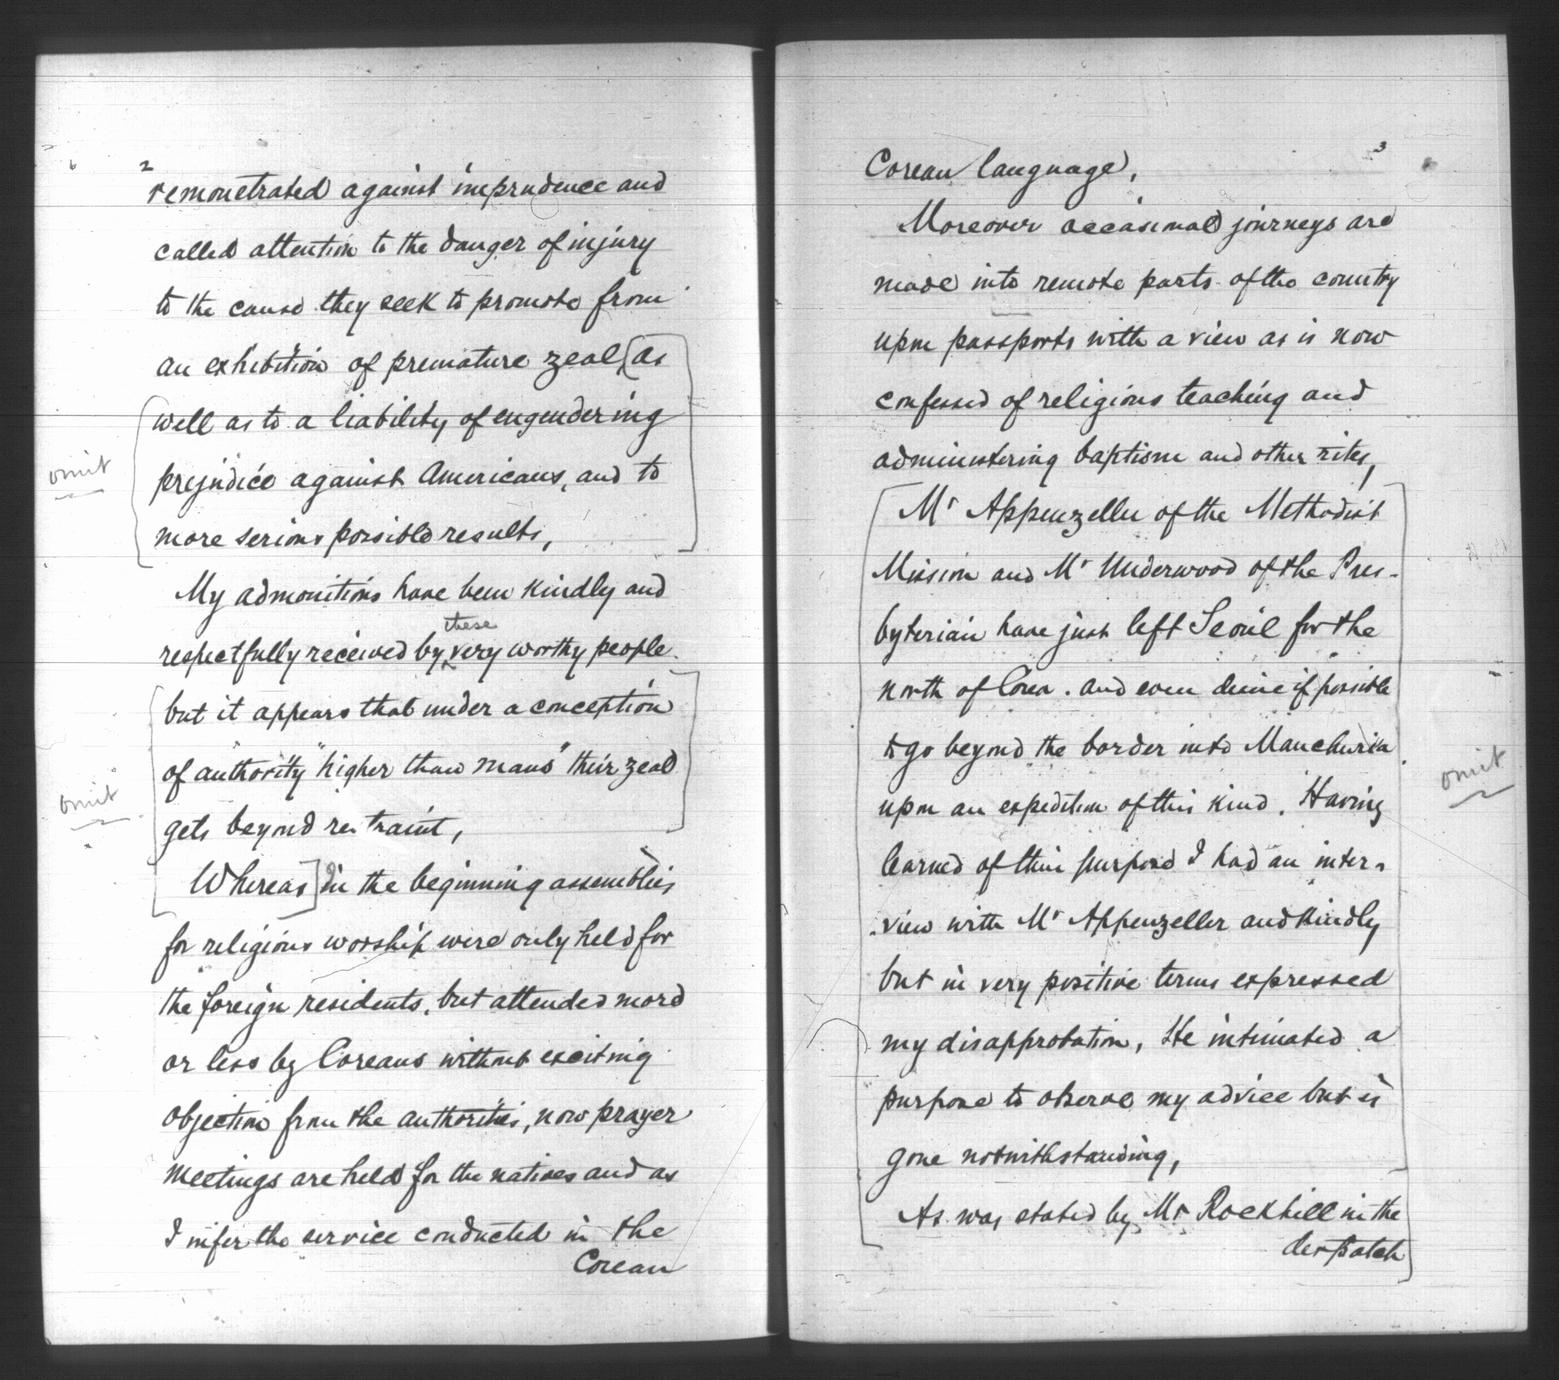 2
remonstrated against imprudence and
called attention to the danger of injury
to the cause they seek to promote from
an exhibition of premature zeal, [as
well as to a liability of engendering
omit
prejudice against Americans, and to
more serious possible results,
My admonitions have been kindly and
these
respectfully received by very worthy people.
but it appears that under a conception
of "authority" higher than mans" their zeal
omit
gets beyond restraint,
Whereas] in the beginning assemblies
for religious worship were only held for
the foreign residents, but attended more
or less by Coreans without exciting
objection from the authorities, now prayer
meetings are held for the natives and as
I infer the service conducted in the
Corean
3
Corean language,
Moreover occasional journeys are
made into remote parts of the country
upon passports with a view as is now
confessed of religious teaching and
administering baptism and other rites,
[Mr Appenzeller of the Methodist
Mission and Mr Underwood of the Pres-
byterian have just left Seoul for the
north of Corea. and even desire if possible
to go beyond the border into Manchuria
omit
upon an expedition of this kind. Having
learned of this purpose I had an inter-
view with Mr Appenzeller and kindly
but in very positive terms expressed
my disapprobation, He intimated a
purpose to observe my advice but is
gone notwithstanding,
As was stated by Mr Rockhill in the
despatch]